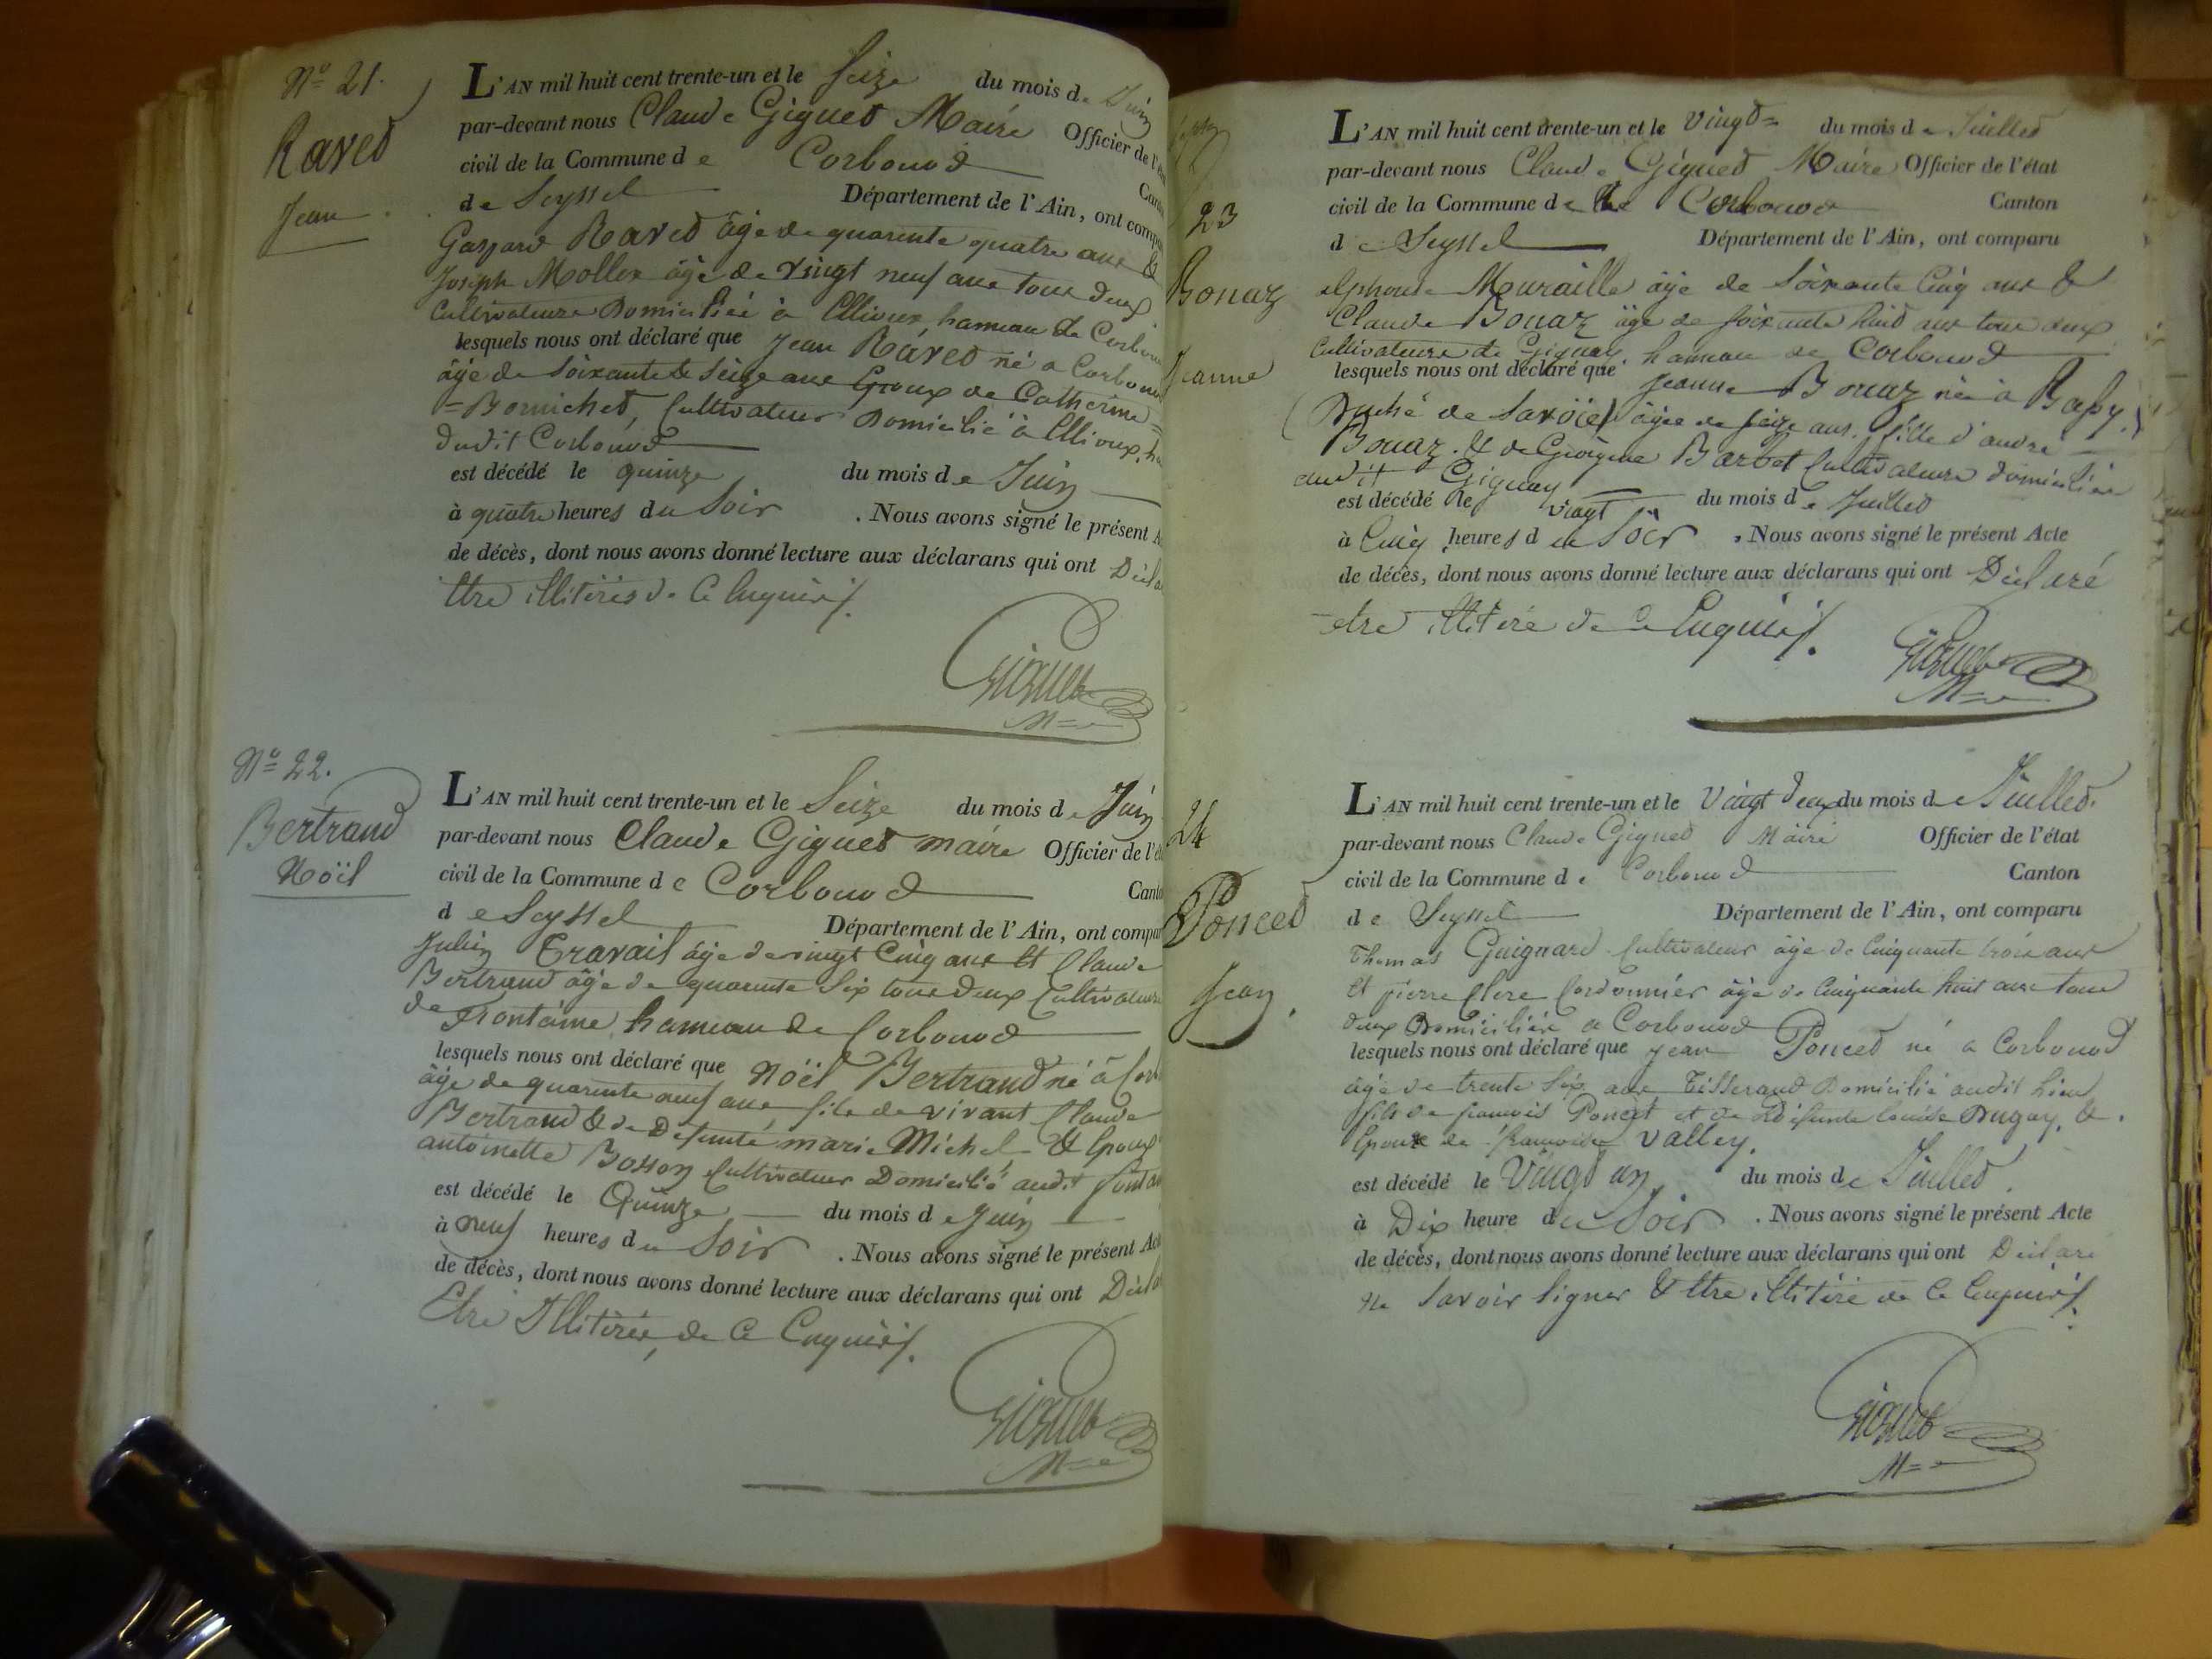 Nº 21.
Raved
Jean
L'AN mil huit cent trente-un et le Seize du mois de Juin
par-devant nous Claude Gignet Maire Officier de l'éta
civil de la Commune de Corbonod Canto
de Seyssel Département de l'Ain, ont compa
Gaspard Raved âgé de quarente quatre ans &
Joseph Mollex âgé de vingt neuf ans tous deux
Cultivateurs Domiciliés à Ellioux, hameau de Corbon
lesquels nous ont déclaré que Jean Raved né a Corbonod
âgé de Soixante & Seize ans Epoux de Catherine =
= Bornichet, Cultivateur Domicilié à Ellioux, ha
dudit Corbonod
est décédé le quinze du mois de Juin
à quatre heures du Soir . Nous avons signé le présent A
de décès, dont nous avons donné lecture aux déclarans qui ont Décla
Etre illitérés de ce Enquis/.
Gignet
M=e
Nº 22.
Bertrand
Noël
L'AN mil huit cent trente-un et le Seize du mois de Juin
par-devant nous Claude Gignet maire Officier de l'é
civil de la Commune de Corbonod Canto
de Seyssel Département de l'Ain, ont compar
Julien Travail âgé de vingt Cinq ans Et Claude
Bertrand âgé de quarente Six tous deux Cultivateurs
de Frontaine hameau de Corbonod
lesquels nous ont déclaré que Noël Bertrand né à Corb
âgé de quarente neuf ans fils de vivant Claude
Bertrand & de Defunte marie Michel & Epoux
antoinette Bosson Cultivateur Domicilié audit Fontai
est décédé le Quinze du mois de Juin
à neuf heures du Soir . Nous avons signé le présent Act
de décès, dont nous avons donné lecture aux déclarans qui ont Décla
Etre Illitérés, de ce Enquis/.
Gignet
M=e
23
Bonaz
Jeanne
L'AN mil huit cent trente-un et le Vingt= du mois de Juilled
par-devant nous Claude Gignet Maire Officier de l'état
civil de la Commune de Corbonod Canton
de Seyssel Département de l'Ain, ont comparu
alphonse Muraille âgé de Soixante Cinq ans &
Claude Bonaz âgé de soixante huid ans tous deux
Cultivateurs de Gignay, hameau de Corbonod
lesquels nous ont déclaré que Jeanne Bonaz née à Bassy.
(Duché de Savoie) âgée de seize ans, fille d'andré
Bonaz & de Georgine Barbet Cultivateurs domiciliés
audit Gignay
est décédé le vingt du mois de Juilled
à Cinq heures du Soir . Nous avons signé le présent Acte
de décès, dont nous avons donné lecture aux déclarans qui ont Déclaré
etre illitéré de ce Enquis/.
Gignet
M=e
24
Ponced
Jean.
L'AN mil huit cent trente-un et le Vingt deux du mois de Juilled.
par-devant nous Claude Gignet Maire Officier de l'état
civil de la Commune de Corbonod Canton
de Seyssel Département de l'Ain, ont comparu
Thomas Guignard Cultivateur âgé de Cinquante trois ans
Et pierre Clerc Cordonnier âgé de Cinquante huit ans tous
deux Domiciliés a Corbonod
lesquels nous ont déclaré que Jean Ponced né a Corbonod
âgé de trente Six ans Tisserand Domicilié audit lieu
fils de françois Poncet et de Défunte Louise Dugay, &
Epoux de françoise Valley.
est décédé le Vingt un du mois de Juilled
à Dix heure du Soir . Nous avons signé le présent Acte
de décès, dont nous avons donné lecture aux déclarans qui ont Déclaré
Ne Savoir Signer & Etre illitéré de ce Enquis/.
Gignet
M=e